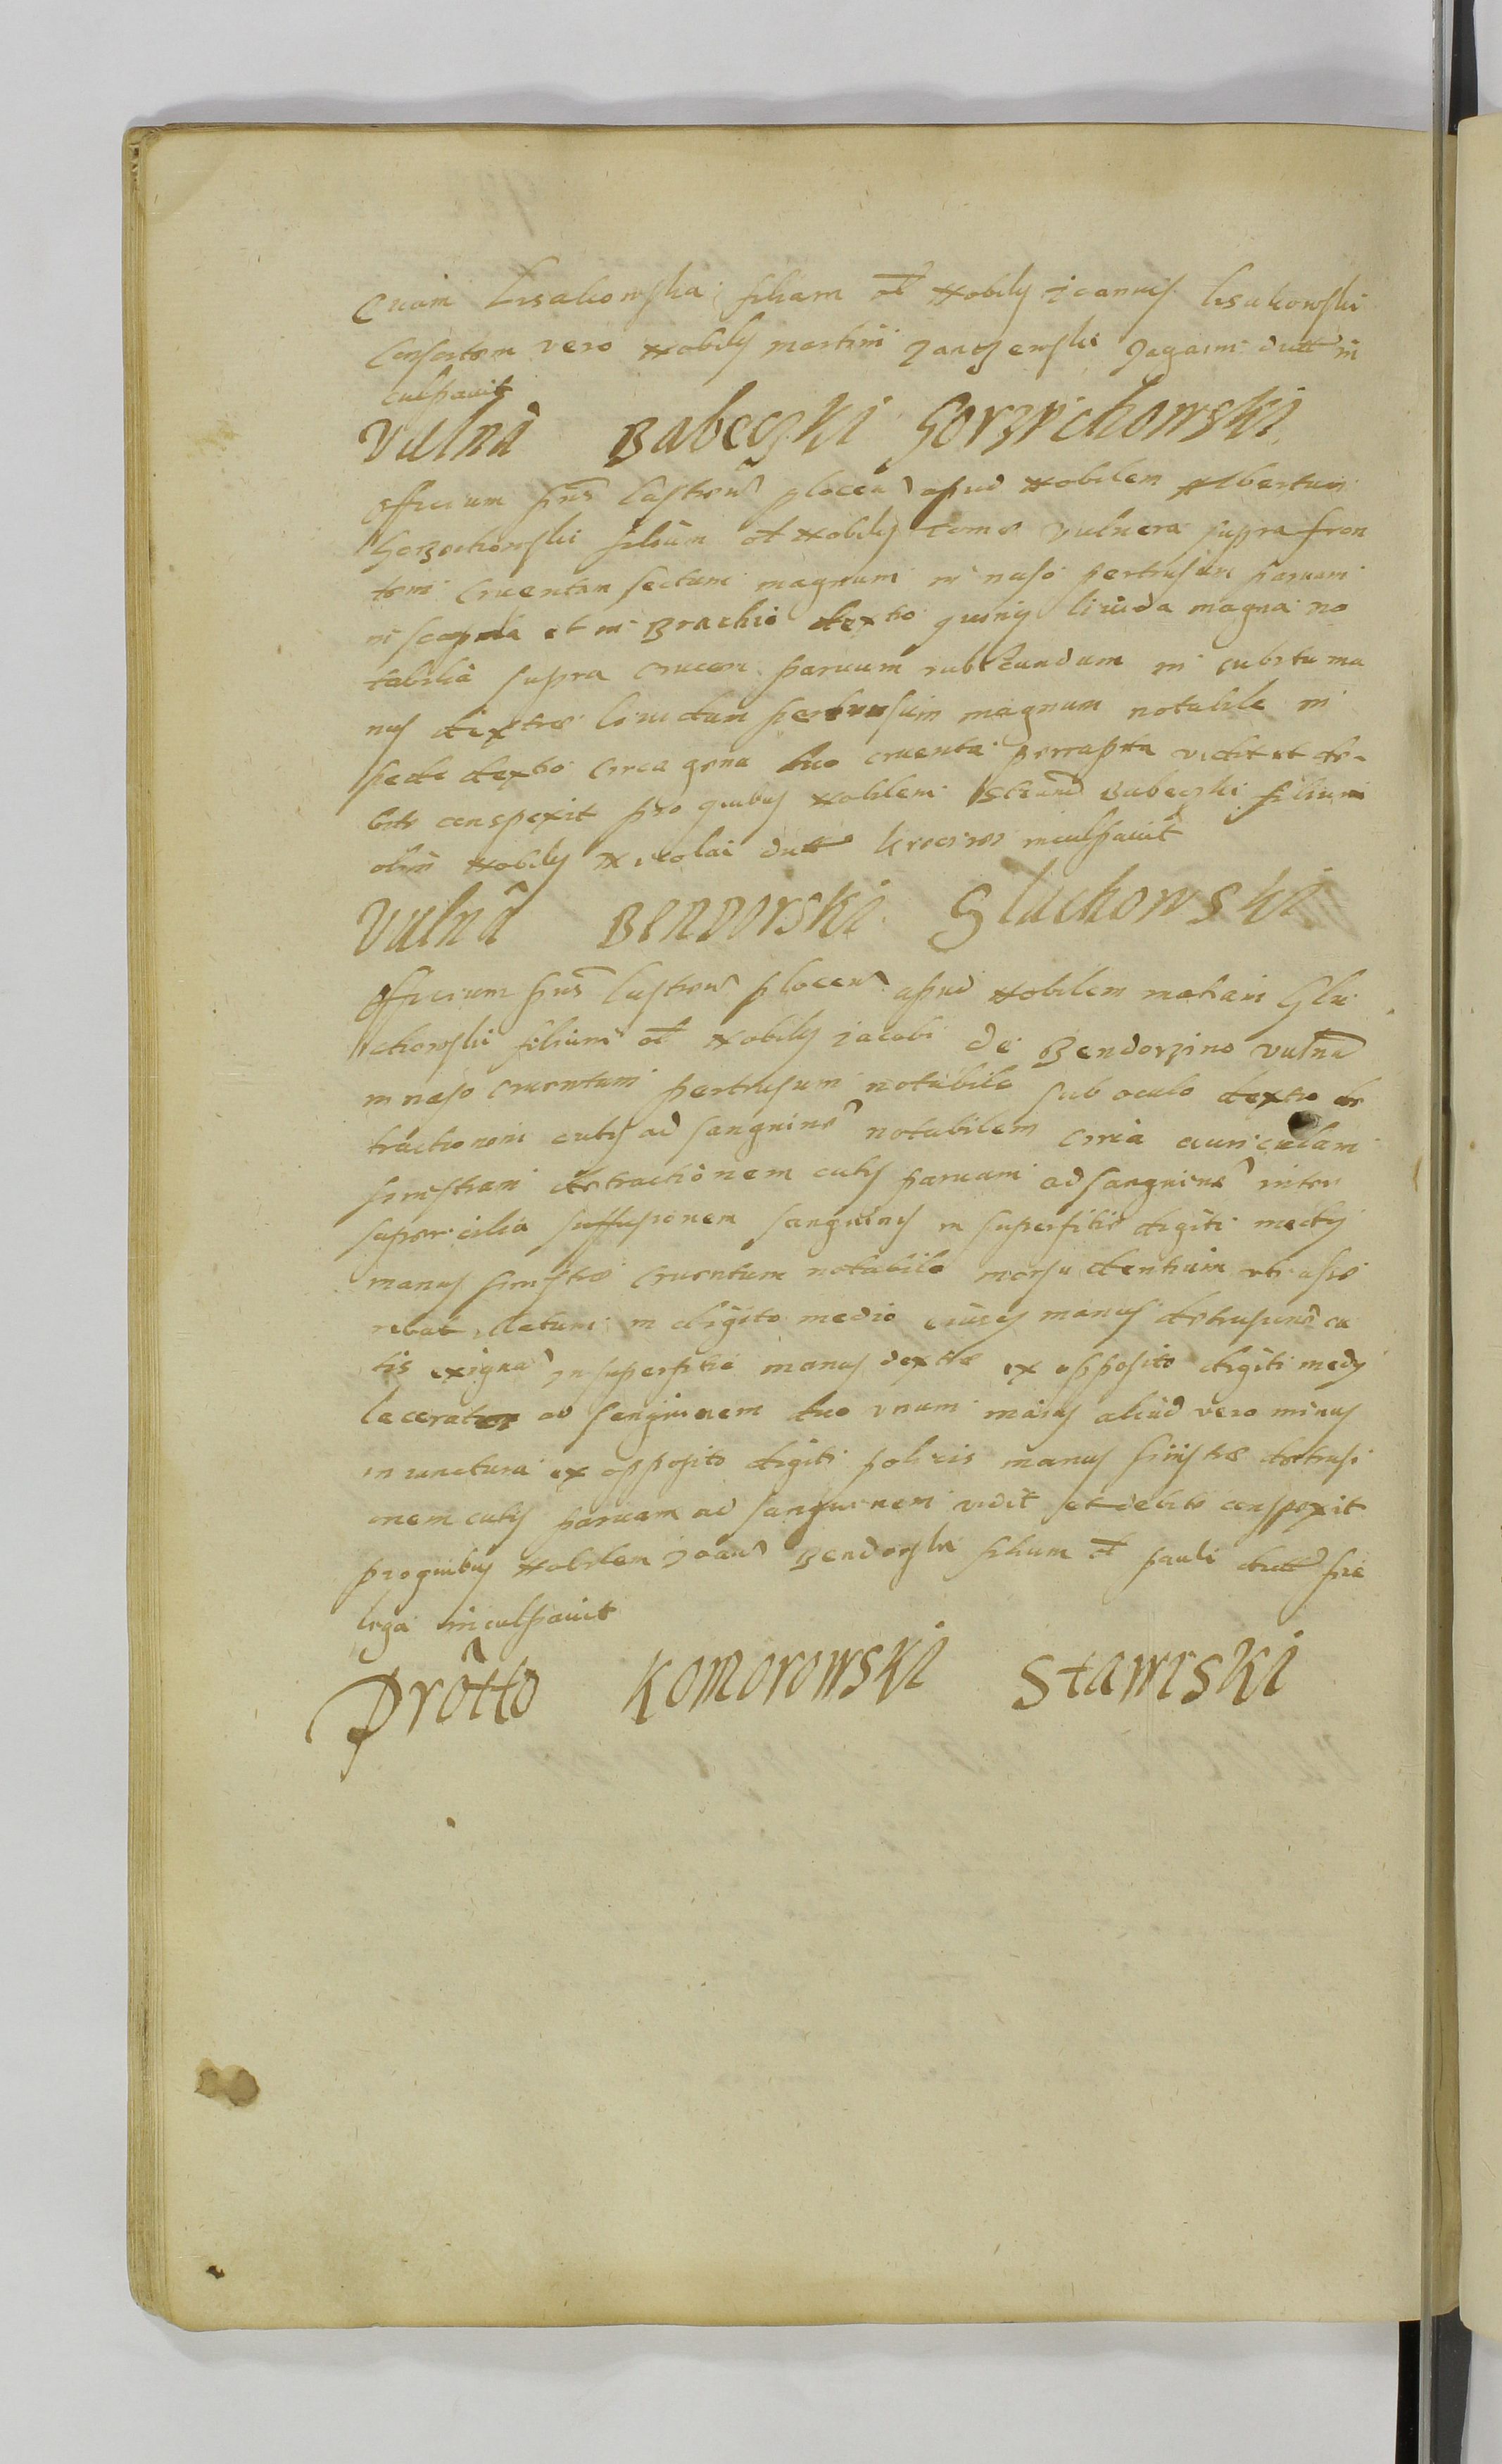 Lisakowska filiam ol Nobilis Joannis Lisakowski
Consortem vero Nobilis Martini dict in
culpavit
Vulna Babeczki Gorzuchowski
Officium pns Castren Plocen apud Nobilem Albertum
filium ol Nobilis vulnera supra fron
tem cruentum sectum magnum in naso pertrusum parvum
in scapula et in Brachio dextro livida magna no
tabilia supra parvum in cubitu ma
nus dextre lividum magnum notabile in
pede dextro circa gena duo cruenta vidit et de
bite conspexit pro quibus Nobilem Babeczki filium
olim Nobilis Nicolai dict inculpavit
Vulna Bendorski Gluchowski
Officium pns Castren Plocen apud Nobilem Mathiam Glu
chowski filium ol Nobilis Jacobi de Bendorzino vulna
in naso cruentum pertrusum notabile sub oculo dextro de
tractionem cutis ad sanguine notabilem circa auriculam
sinistram detractionem cutis parvam ad sanguine inter
supercilia suffusionem sanguinis in superfitie digiti medij
manus sinistre cruentum notabile morsu dentium uti asse
rebat datum in digito medio manus detrusione cu
tis exigua in superfitie manus dextre ex opposito digiti medij
ad sanguinem duo unum maius aliud vero minus
in iunctura ex opposito digiti policis manus sinistre detrusi
onem cutis parvam ad sanguinem vidit et debite conspexit
pro quibus Nobilem Joan Bendorski filium ol Pauli dict
inculpavit
Protto Komorowski Stawiski